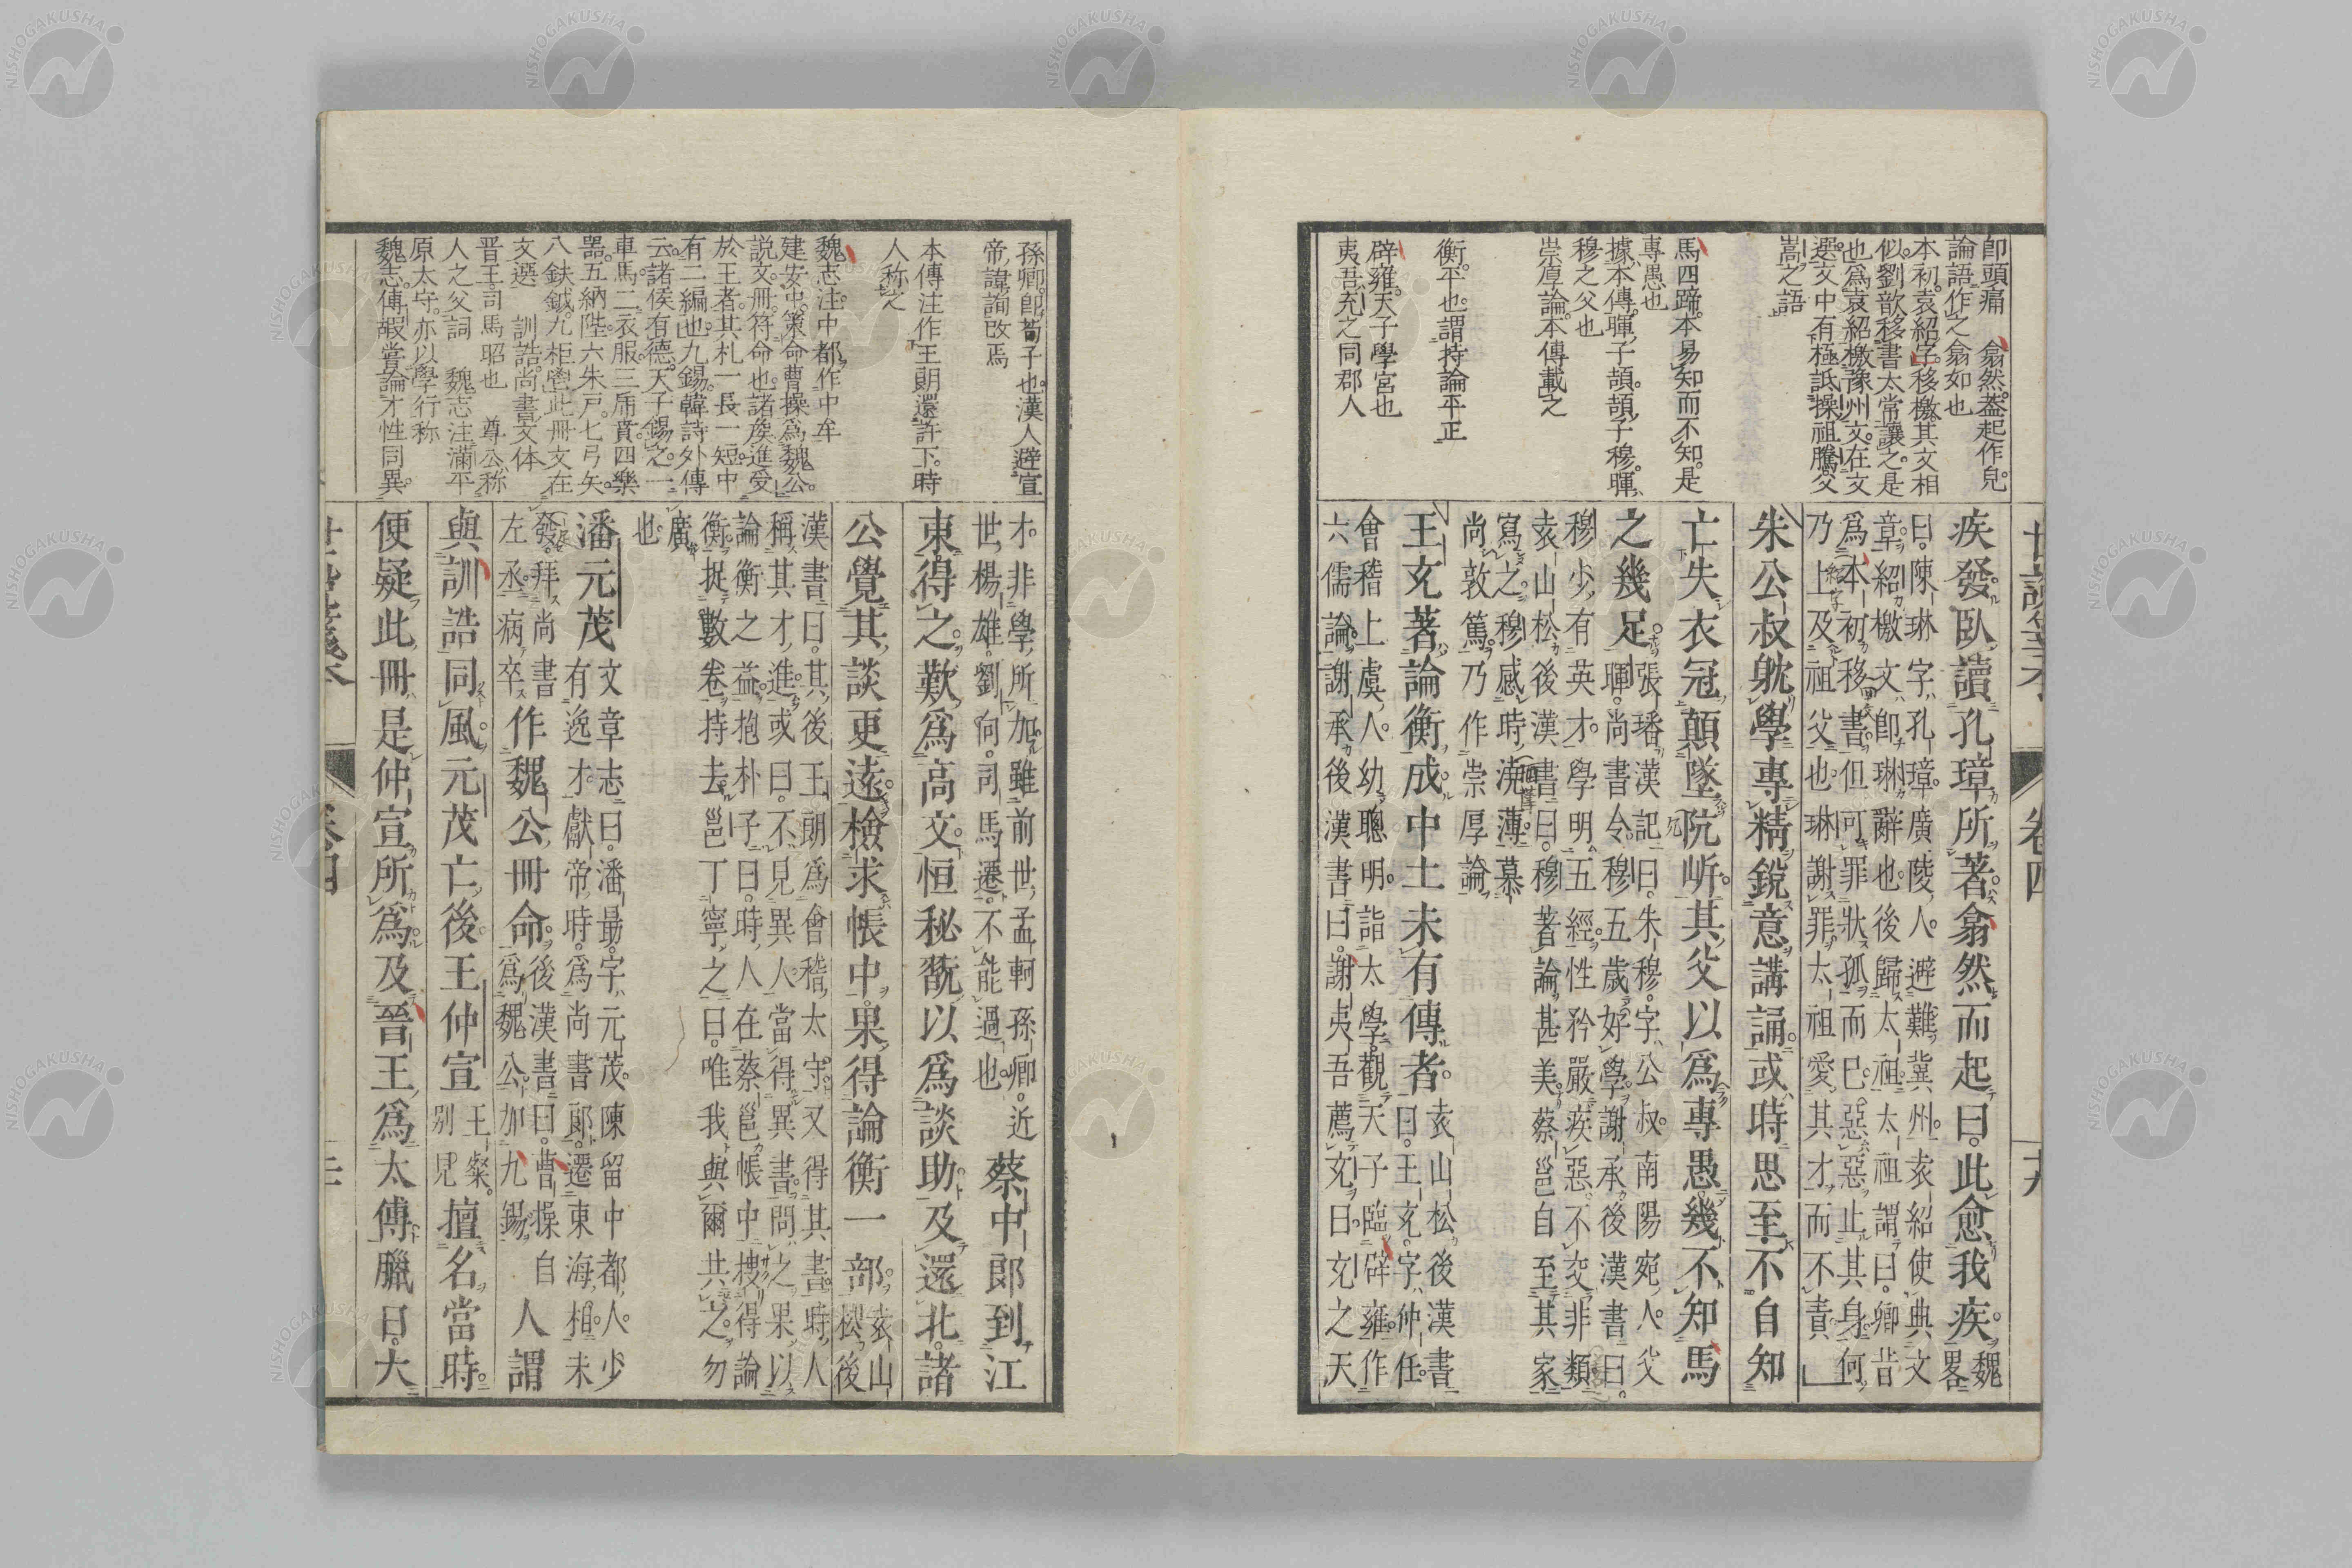 即頭痛　翕然蓋起作皃
論語作之翕如也
本初袁紹字移檄其文相
似劉歆移書太常讓之是
也爲袁紹檄豫州文在文
選文中有極詆操祖騰父
嵩之語
馬四蹄本易知而不知是
專愚也
據本傳暉子頡頡子穆暉
穆之父也
崇厚論本傳載之
衡平也謂持論平正
辟雍天子學宮也
夷吾充之同郡人
疾發臥讀孔璋所著翕然而起曰此愈我疾魏畧
曰陳琳字孔璋廣陵人避難冀州袁紹使典文
章紹檄文即琳辭也後歸太祖太祖謂曰卿昔
爲本初移書但可罪狀孤而已惡惡止其身何
乃上及祖父也琳謝罪太祖愛其才而不責
朱公叔躭學專精銳意講誦或時思至不自知
亡失衣冠顛墜阬岓其父以爲專愚幾不知馬
之幾足張璠漢記曰朱穆字公叔南陽宛人父
暉尚書令穆五歲好學謝承後漢書曰
穆少有英才學明五經性矜嚴疾惡不交非類
袁山松後漢書曰穆著論甚美蔡邕自至其家
寫之穆感時澆薄慕
尚敦篤乃作崇厚論
王充著論衡成中土未有傳者袁山松後漢書
曰王充字仲任
會稽上虞人幼聰明詣太學觀天子臨辟雍作
六儒論謝承後漢書曰謝夷吾薦充曰充之天
世說箋本
卷四
十九
孫卿即荀子也漢人避宣
帝諱詢改焉
本傳注作王朗還許下時
人称之
魏志注中都作中牟
建安中策命曹操爲魏公
説文冊符命也諸侯進受
於王者其札一長一短中
有二編也九錫韓詩外傳
云諸侯有德天子錫之一
車馬二衣服三虎賁四樂
器五納陛六朱戸七弓矢
八鈇鉞九柜鬯此冊文在
文選　訓誥尚書文体
晋王司馬昭也　尊公称
人之父詞　魏志注滿平
原太守亦以學行称
魏志傅嘏嘗論才性同異
才非學所加雖前世孟軻孫卿近
世楊雄劉向司馬遷不能過也蔡中郎到江
東得之歎爲高文恒秘翫以爲談助及還北諸
公覺其談更遠檢求帳中果得論衡一部袁山
松後
漢書曰其後王朗爲會稽太守又得其書時人
稱其才進或曰不見異人當得異書問之果以
論衡之益抱朴子曰時人在蔡邕帳中搜得論
衡捉數卷持去邕丁寧之曰唯我與爾共之勿
廣也
潘元茂文章志曰潘勗字元茂陳留中都人少
有逸才獻帝時爲尚書郞遷東海相未
發拜尚書
左丞病卒作魏公冊命後漢書曰曹操自
爲魏公加九錫人謂
與訓誥同風元茂亡後王仲宣王粲
別見擅名當時
便疑此冊是仲宣所爲及晉王爲太傅臘日大
卷四